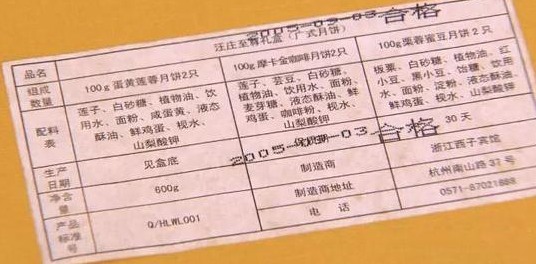 2005-09-03 合格
品名 汪庄至尊礼盒（广式月饼）
组成数量 100g 蛋黄莲蓉月饼2只 100g 摩卡金咖啡月饼2只 100g栗蓉蜜豆月饼2只
配料表
莲子、白砂糖、植物油、饮用水、面粉、咸蛋黄、液态酥油、鲜鸡蛋、枧水、山梨酸钾
莲子、芸豆、白砂糖、植物油、饮用水、面粉、麦芽糖、液态酥油、鲜鸡蛋、咖啡粉、枧水、山梨酸钾
板栗、白砂糖、植物油、红小豆、黑小豆、饴糖、饮用水、面粉、淀粉、液态酥油、鲜鸡蛋、枧水、山梨酸钾
2005-09-03 合格
生产日期 见盒底 保质期 30 天
净含量 600g 制造商 浙江西子宾馆
产品标准号 Q/HLWL001 制造商地址 杭州南山路 37 号
电 话 0571-87021888